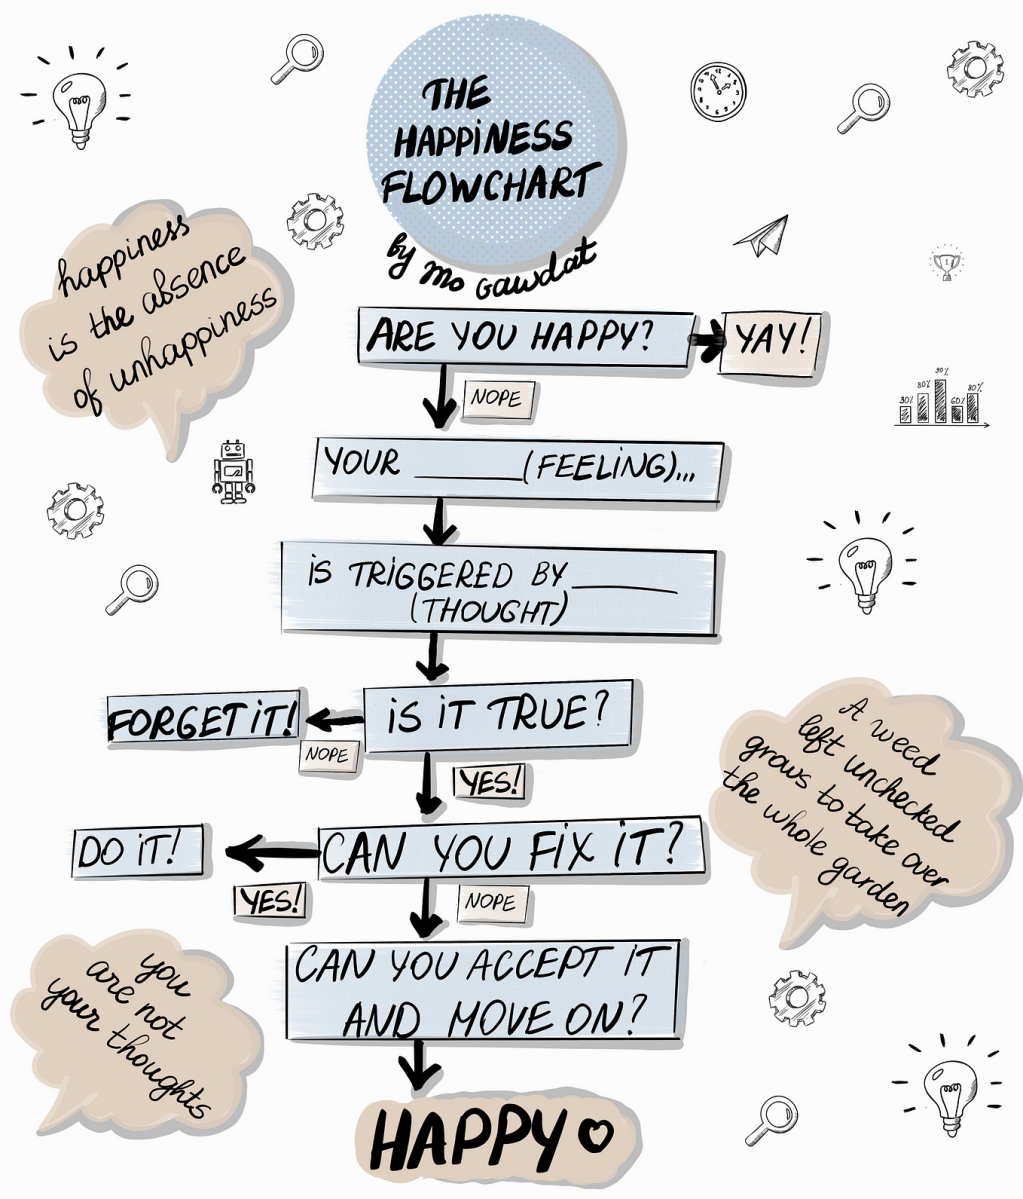 THE
HAPPiNESS
FLOWCHART
by Mo Gawdat
happiness
is the absence
of unhappiness
ARE YOU HAPPY?
YAY!
NOPE
YOUR ______(FEELiNG)...
iS TRiGGERED BY______
(THOUGHT)
iS iT TRUE?
FORGET iT!
NOPE
YES!
CAN YOU FiX iT?
DO iT!
YES!
NOPE
CAN YOU ACCEPT IT
AND MOVE ON?
HAPPY
30% 80% 90% 60% 80%
A weed
left unchecked
grows to take over
the whole garden
you
are not
your thoughts